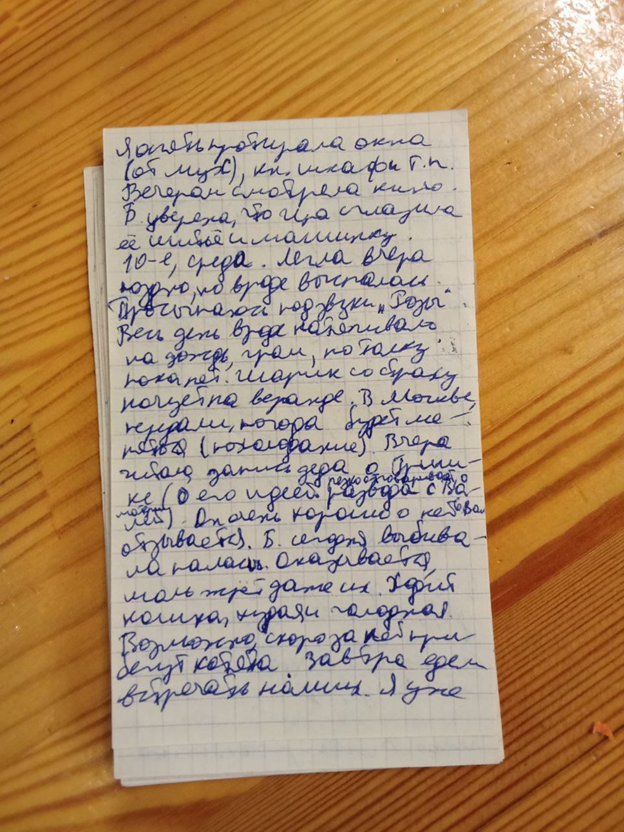 Я опять протирала окна
(от мух), кн. шкафы т.п.
Вечером смотрела кино.
Б. уверена, что Ира сглазила
её шитьё и машинку.
10-е, среда. Легла вчера
поздно, но вроде выспалась.
Просыпаюсь под звуки „Розы".
Весь день вроде натягивало
на дождь, гром, но толку
пока нет. Шарик со страху
ночует на веранде. В Москве,
передали, погода будет ме-
няться (похолодание). Вчера
читаю запись деда о Гриш-
ке (о его идее развода с Ва-
лей). Он очень хорошо о ней
отзывается. Б. сегодня выбива-
ла паласы. Оказывается,
моль жрёт даже их. Ходит
кошка, худая и голодная.
Возможно, скоро за ней при
бегут котята Завтра едем
встречать наших. Я уже